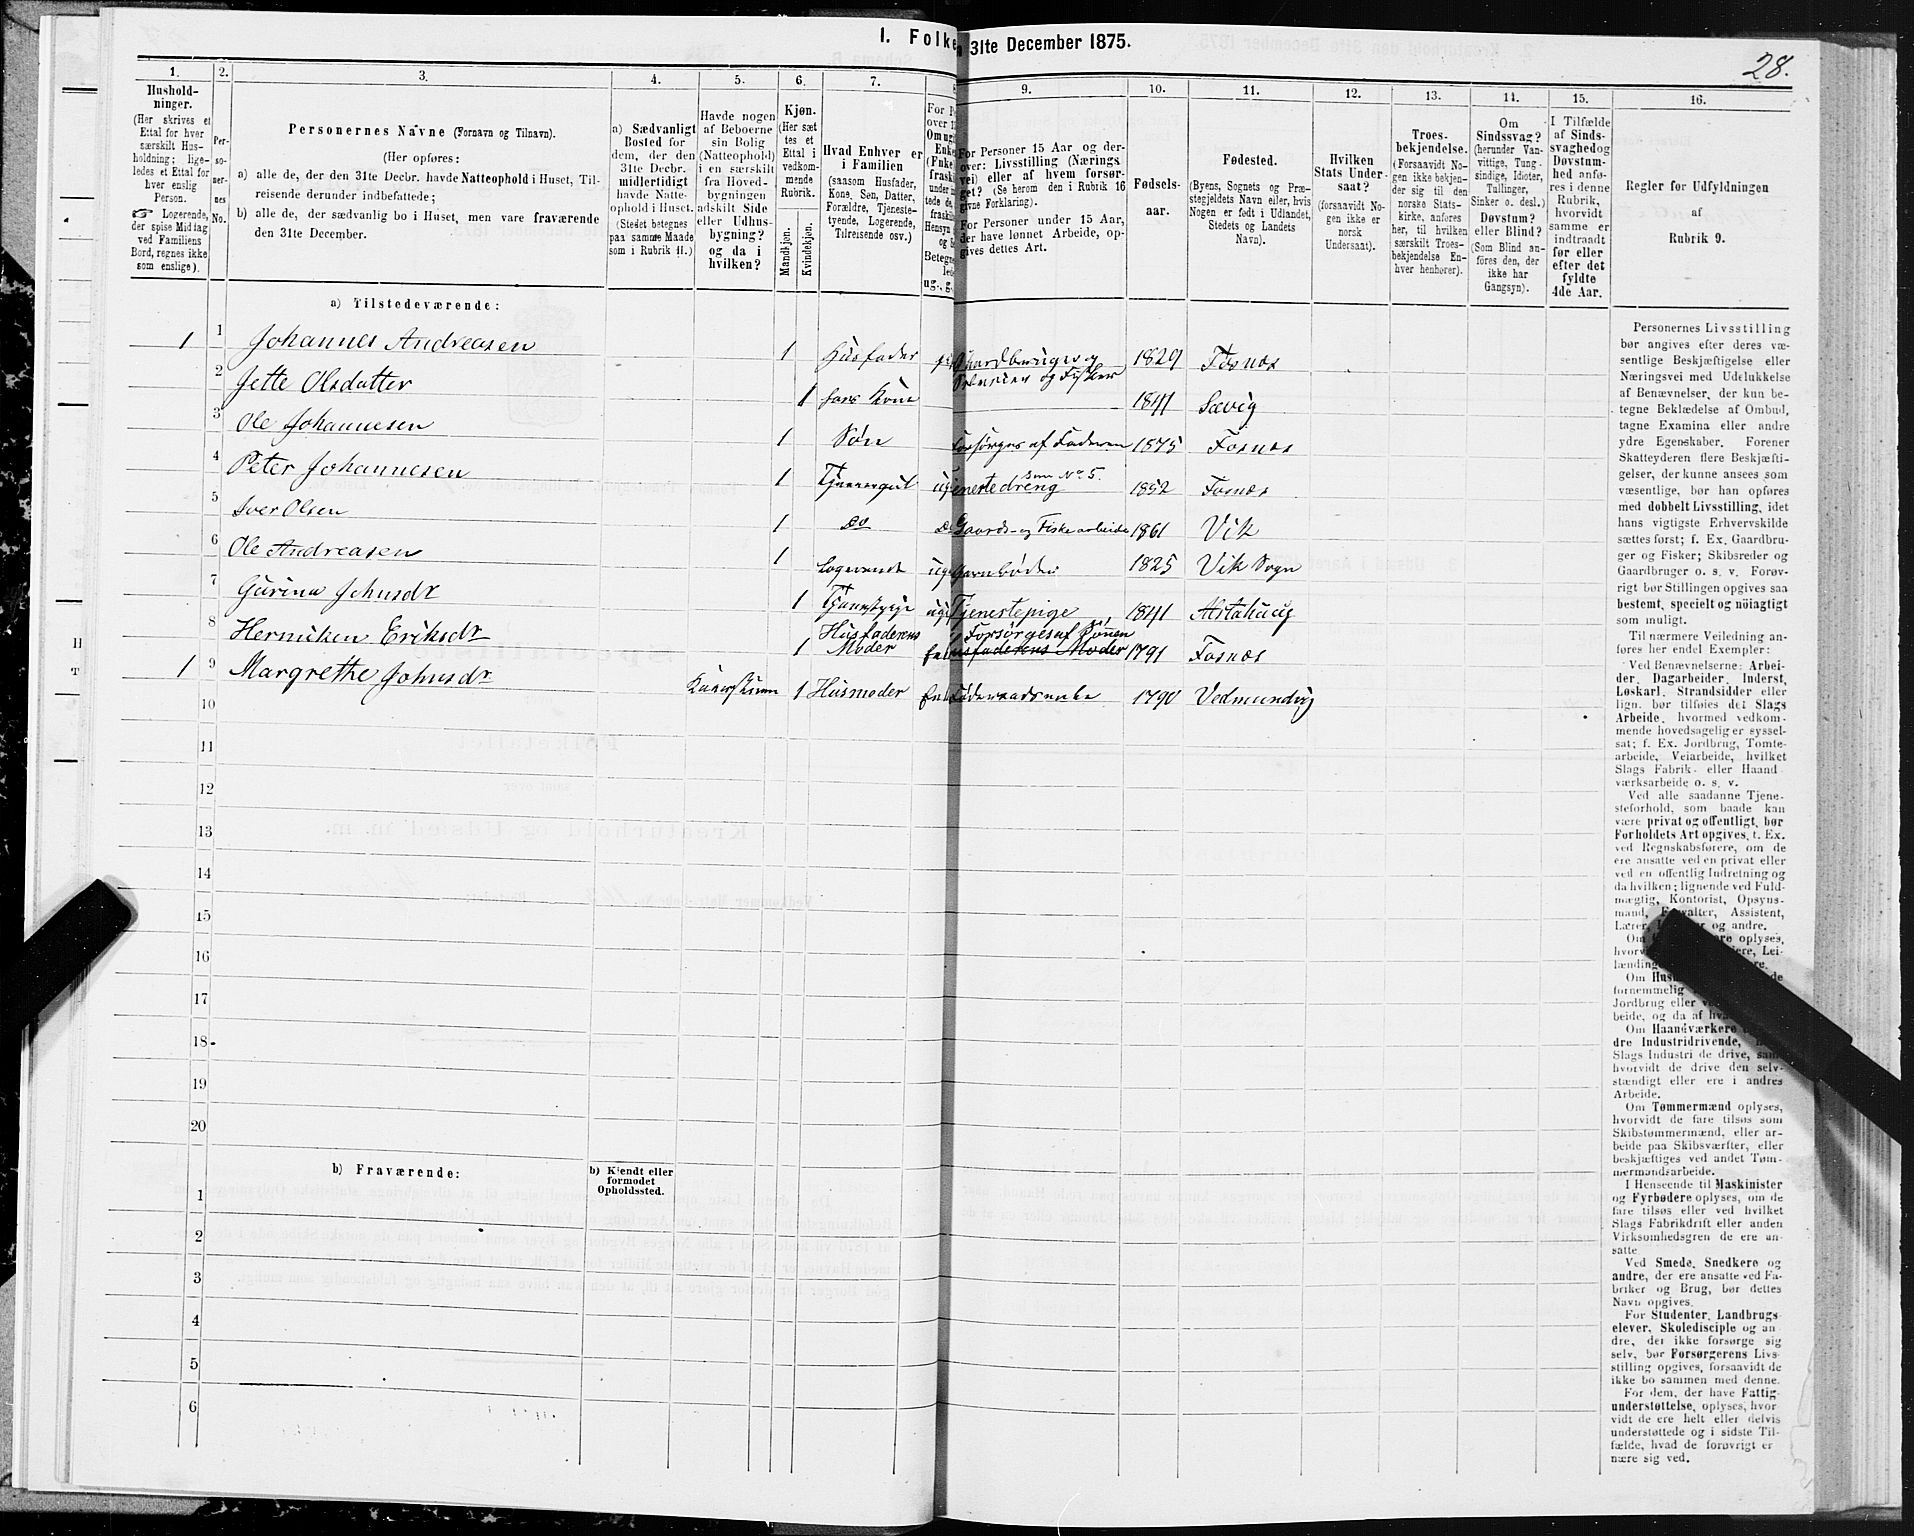 I. Folke 31te December 1875.
28.
1.
2.
3.
4.
5.
6.
7.
9.
10.
11.
12.
13.
14.
15.
16.
Hushold-
ninger.
(Her skrives et
Ettal for hver
særskilt Hus-
holdning; lige-
ledes et Ettal for
hver enslig
Person.
☞ Logerende,
der spise Middag
ved Familiens
Bord, regnes ikke
som enslige).
Per-
so-
ner-
nes
No.
Personernes Navne (Fornavn og Tilnavn).
(Her opføres:
a) alle de, der den 31te Decbr. havde Natteophold i Huset, Til-
reisende derunder indbefattede;
b) alle de, der sædvanlig bo i Huset, men vare fraværende
den 31te December.
a) Sædvanligt
Bosted for
dem, der den
31te Decbr.
midlertidigt
havde Natte-
ophold i Huset.
(Stedet betegnes
paa samme Maade
som i Rubrik 11.)
Havde nogen
af Beboerne
sin Bolig
(Natteophold)
i en særskilt
fra Hoved-
bygningen
adskilt Side
eller Udhus-
bygning?
og da i
hvilken?
Kjøn.
(Her sæt
tes et
Ettal i
vedkom-
mende
Rubrik.
Mandkjøn.
Kvindekjøn.
Hvad Enhver er
i Familien
(saasom Husfader,
Kone, Søn, Datter,
Forældre, Tjeneste-
tyende, Logerende,
Tilreisende osv.)
For Personer 15 Aar og der-
over: Livsstilling (Nærings
vei) eller af hvem forsør-
get? (Se herom den i Rubrik 16
givne Forklaring).
For Personer under 15 Aar,
der have lønnet Arbeide, op-
gives dettes Art.
Fødsels-
aar.
Fødested.
(Byens, Sognets og Præ-
stegjeldets Navn eller, hvis
Nogen er født i Udlandet,
Stedets og Landets
Navn).
Hvilken
Stats Under-
saat?
(forsaavidt No-
gen ikke er
norsk
Undersaat).
Troes-
bekjendelse.
(Forsaavidt No-
gen ikke bekjen-
der sig til den
norske Stats-
kirke, anføres
her, til hvilken
særskilt Troes-
bekjendelse En-
hver henhører).
Om
Sindssvag?
(herunder Van-
vittige, Tung-
sindige, Idioter,
Tullinger,
Sinker o. desl.)
Døvstum?
eller Blind?
(Som Blind an-
føres den, der
ikke har
Gangsyn).
I Tilfælde
af Sinds-
svaghedog
Døvstum-
hed anfø-
res i denne
Rubrik,
hvorvidt
samme er
indtraadt
før eller
efter det
fyldte
4de Aar.
Regler for Udfyldningen
af
Rubrik 9.
a) Tilstedeværende:
1 1 Johannes Andreasen 1 Husfader Gaardbruger og 1829 Fosnæs
Selveier og Fisker
2 Jette Olsdatter 1 hans Kone 1841 Sævig
3 Ole Johannesen 1 Søn Forsørges af Faderen 1875 Fosnæs
4 Peter Johannesen 1 ug Tjenestedreng Som No 5. 1852 Fosnæs
5 Iver Olsen 1 do Gaards- og Fiskearbeide 1861 Vik
6 Ole Andreasen 1 Logerende ug 1825 Vik Sogn
7 Gurina Johnsdr 1 ug Tjenestepige 1841 Alstahaug
8 Hernikken Eriksdr 1 Husfaderens Moder Forsørges af Sønnen 1791 Fosnæs
1 9 Margrethe Johnsdr 1 Husmoder Føderaadsenke 1790
10
11
12
13
14
15
16
17
18
19
20
b) Fraværende:
b) Kjendt eller
formodet
Opholdssted.
1
2
3
4
5
6
Personernes Livsstilling
bør angives efter deres væ-
sentlige Beskjæftigelse eller
Næringsvei med Udelukkelse
af Benævnelser, der kun be-
tegne Beklædelse af Ombud,
tagne Examina eller andre
ydre Egenskaber. Forener
Skatteyderen flere Beskjæfti-
gelser, der kunne ansees som
væsentlige, bør han opføres
med dobbelt Livsstilling, idet
hans vigtigste Erhvervskilde
sættes først; f. Ex. Gaardbru-
ger og Fisker; Skibsreder og
Gaardbruger o. s. v. Forøv-
rigt bør Stillingen opgives saa
bestemt, specielt og nöiagtigt
som muligt.
Til nærmere Veiledning an-
føres her endel Exempler:
Ved Benævnelserne: Arbei-
der, Dagarbeider, Inderst,
Løskarl, Strandsidder eller
lign. bør tilføies det Slags
Arbeide, hvormed vedkom-
mende hovedsagelig er syssel-
sat; f. Ex. Jordbrug, Tomte-
arbeide, Veiarbeide, hvilket
Slags Fabrik- eller Haand
værksarbeide o. s. v.
Ved alle saadanne Tjene-
steforhold, som baade kan
være privat og offentligt, bør
Forholdets Art opgives, t. Ex.
ved Regnskabsførere, om de
ere ansatte ved en privat eller
ved en offentlig Indretning og
da hvilken; lignende ved Fuld-
mægtig, Kontorist, Opsyns-
mand, Forvalter, Assistent,
Lærer, og andre.
Om oplyses,
Om
fornemmelig
Jordbrug eller
beide, og da af
Om Haandværkere
dre Industridrivende,
Slags Industri de drive, samt
hvorvidt de drive den selv-
stændigt eller ere i andres
Arbeide.
Om Tømmermænd oplyses,
hvorvidt de fare tilsøs som
Skibstømmermænd, eller ar-
beide paa Skibsværfter, eller
beskjæftiges ved andet Tøm-
mermandsarbeide.
I Henseende til Maskinister
og Fyrbødere oplyses, om de
fare tilsøs eller ved hvilket
Slags Fabrikdrift eller anden
Virksomhedsgren de ere an-
satte.
Ved Smede, Snedkere og
andre, der ere ansatte ved Fa-
briker og Brug, bør dettes
Navn opgives.
For Studenter, Landbrugs-
elever, Skoledisciple og an
dre, der ikke forsørge sig
selv, bør Forsørgerens Livs-
stilling opgives, forsaavidt de
ikke bo sammen med denne.
For dem, der have Fattig-
understøttelse, oplyses, hvor-
vidt de ere helt eller delvis
understøttede og i sidste Til-
fælde, hvad de forøvrigt er
nære sig ved.